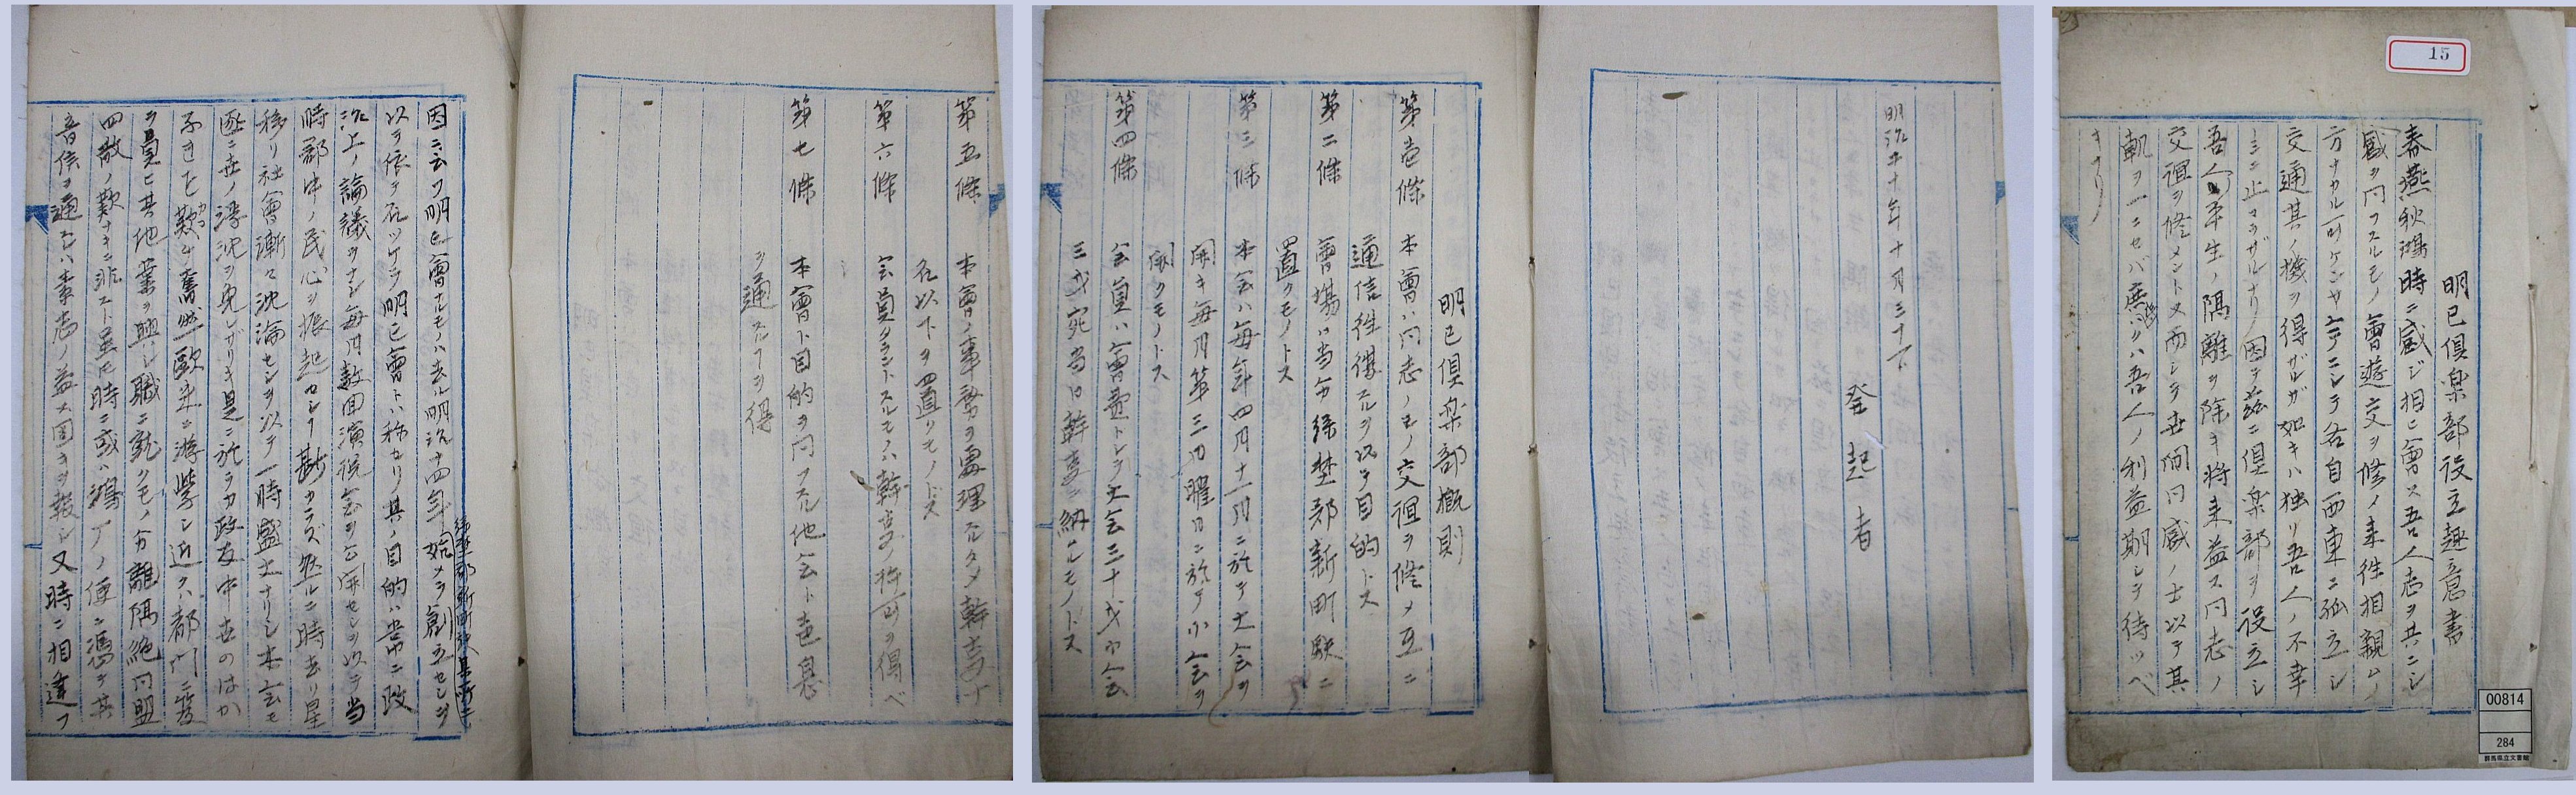 15
明已倶楽部役立趣意書
春燕秋鴻時ニ感ジ相ヒ會ス吾人志ヲ共ニシ
感ヲ同フスルモノ會遊交ヲ修ノ来往相親ムノ
方ナカル可ケンヤ今ヤニシテ各自西東ニ孤立シ
交通其ノ機ヲ得ザルガ如キハ独リ吾人ノ不幸
ミニ止マラザルナリ因テ茲ニ倶楽部ヲ役立シ
吾人平生ノ隔離ヲ除キ将来益ス同志ノ
交誼ヲ修メントス而シテ世間同感ノ士以テ其
軌ヲ一ニセバ庶ハクハ吾人ノ利益期シテ待ツベ
キナリ
00814
284
群馬県立文書館
明治二十年十月三十日
発起者
明已倶楽部概則
第壱條 本會ハ同志ノモノ交誼ヲ修メ互ニ
通信往復スルヲ以テ目的トス
第二條 會場ハ当分緑埜郡新町駅ニ
置クモノトス
第三條 本会ハ毎年四月十一月ニ於テ大会ヲ
開キ毎月第三日曜日ニ於テ小会ヲ
開クモノトス
第四條 会員ハ會費トシテ大会三十戔小会
三戔宛当日幹事ニ納ルモノトス
第五條 本會ノ事務ヲ處理スルタメ幹事
名以下ヲ置クモノトス
第六條 会員タラントスルモノハ幹事ノ許可ヲ得ベ
第七條 本會ト目的ヲ同フスル他会ト声息
ヲ通スルヿヲ得
因ニ云フ明已會ナルモノハ去ル明治十四年始メテ創立センヲ
緑埜郡新町駅某所ニ
以テ依テ名ツケテ明已會トハ称セリ其ノ目的ハ常ニ政
治上ノ論議ヲナシ毎月数回演説会ヲ公開センヲ以テ当
時郡中ノ民心ヲ振起センヿ尠カラズ然ルニ時去リ星
移リ社會漸ク沈淪センヲ以テ一時盛大ナリシ本会モ
遂ニ世ノ浮沈ヲ免レザリキ是ニ於テカ政友中世のはか
なきを歎ケ奮然歐米ニ遊學シ近クハ都門ニ
ヲ負ヒ其他業ヲ興シ職ニ就クモノ分離隔絶同盟
四散ノ歎ナキニ非ズト虽𪜈時ニ或ハ鴻アノ便ニ憑テ其
音信ヲ通スレハ素志ノ益ス固キヲ報シ又時ニ相逢フ